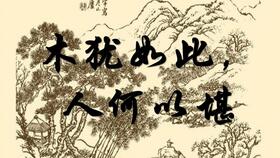 木犹如此，
人何以堪